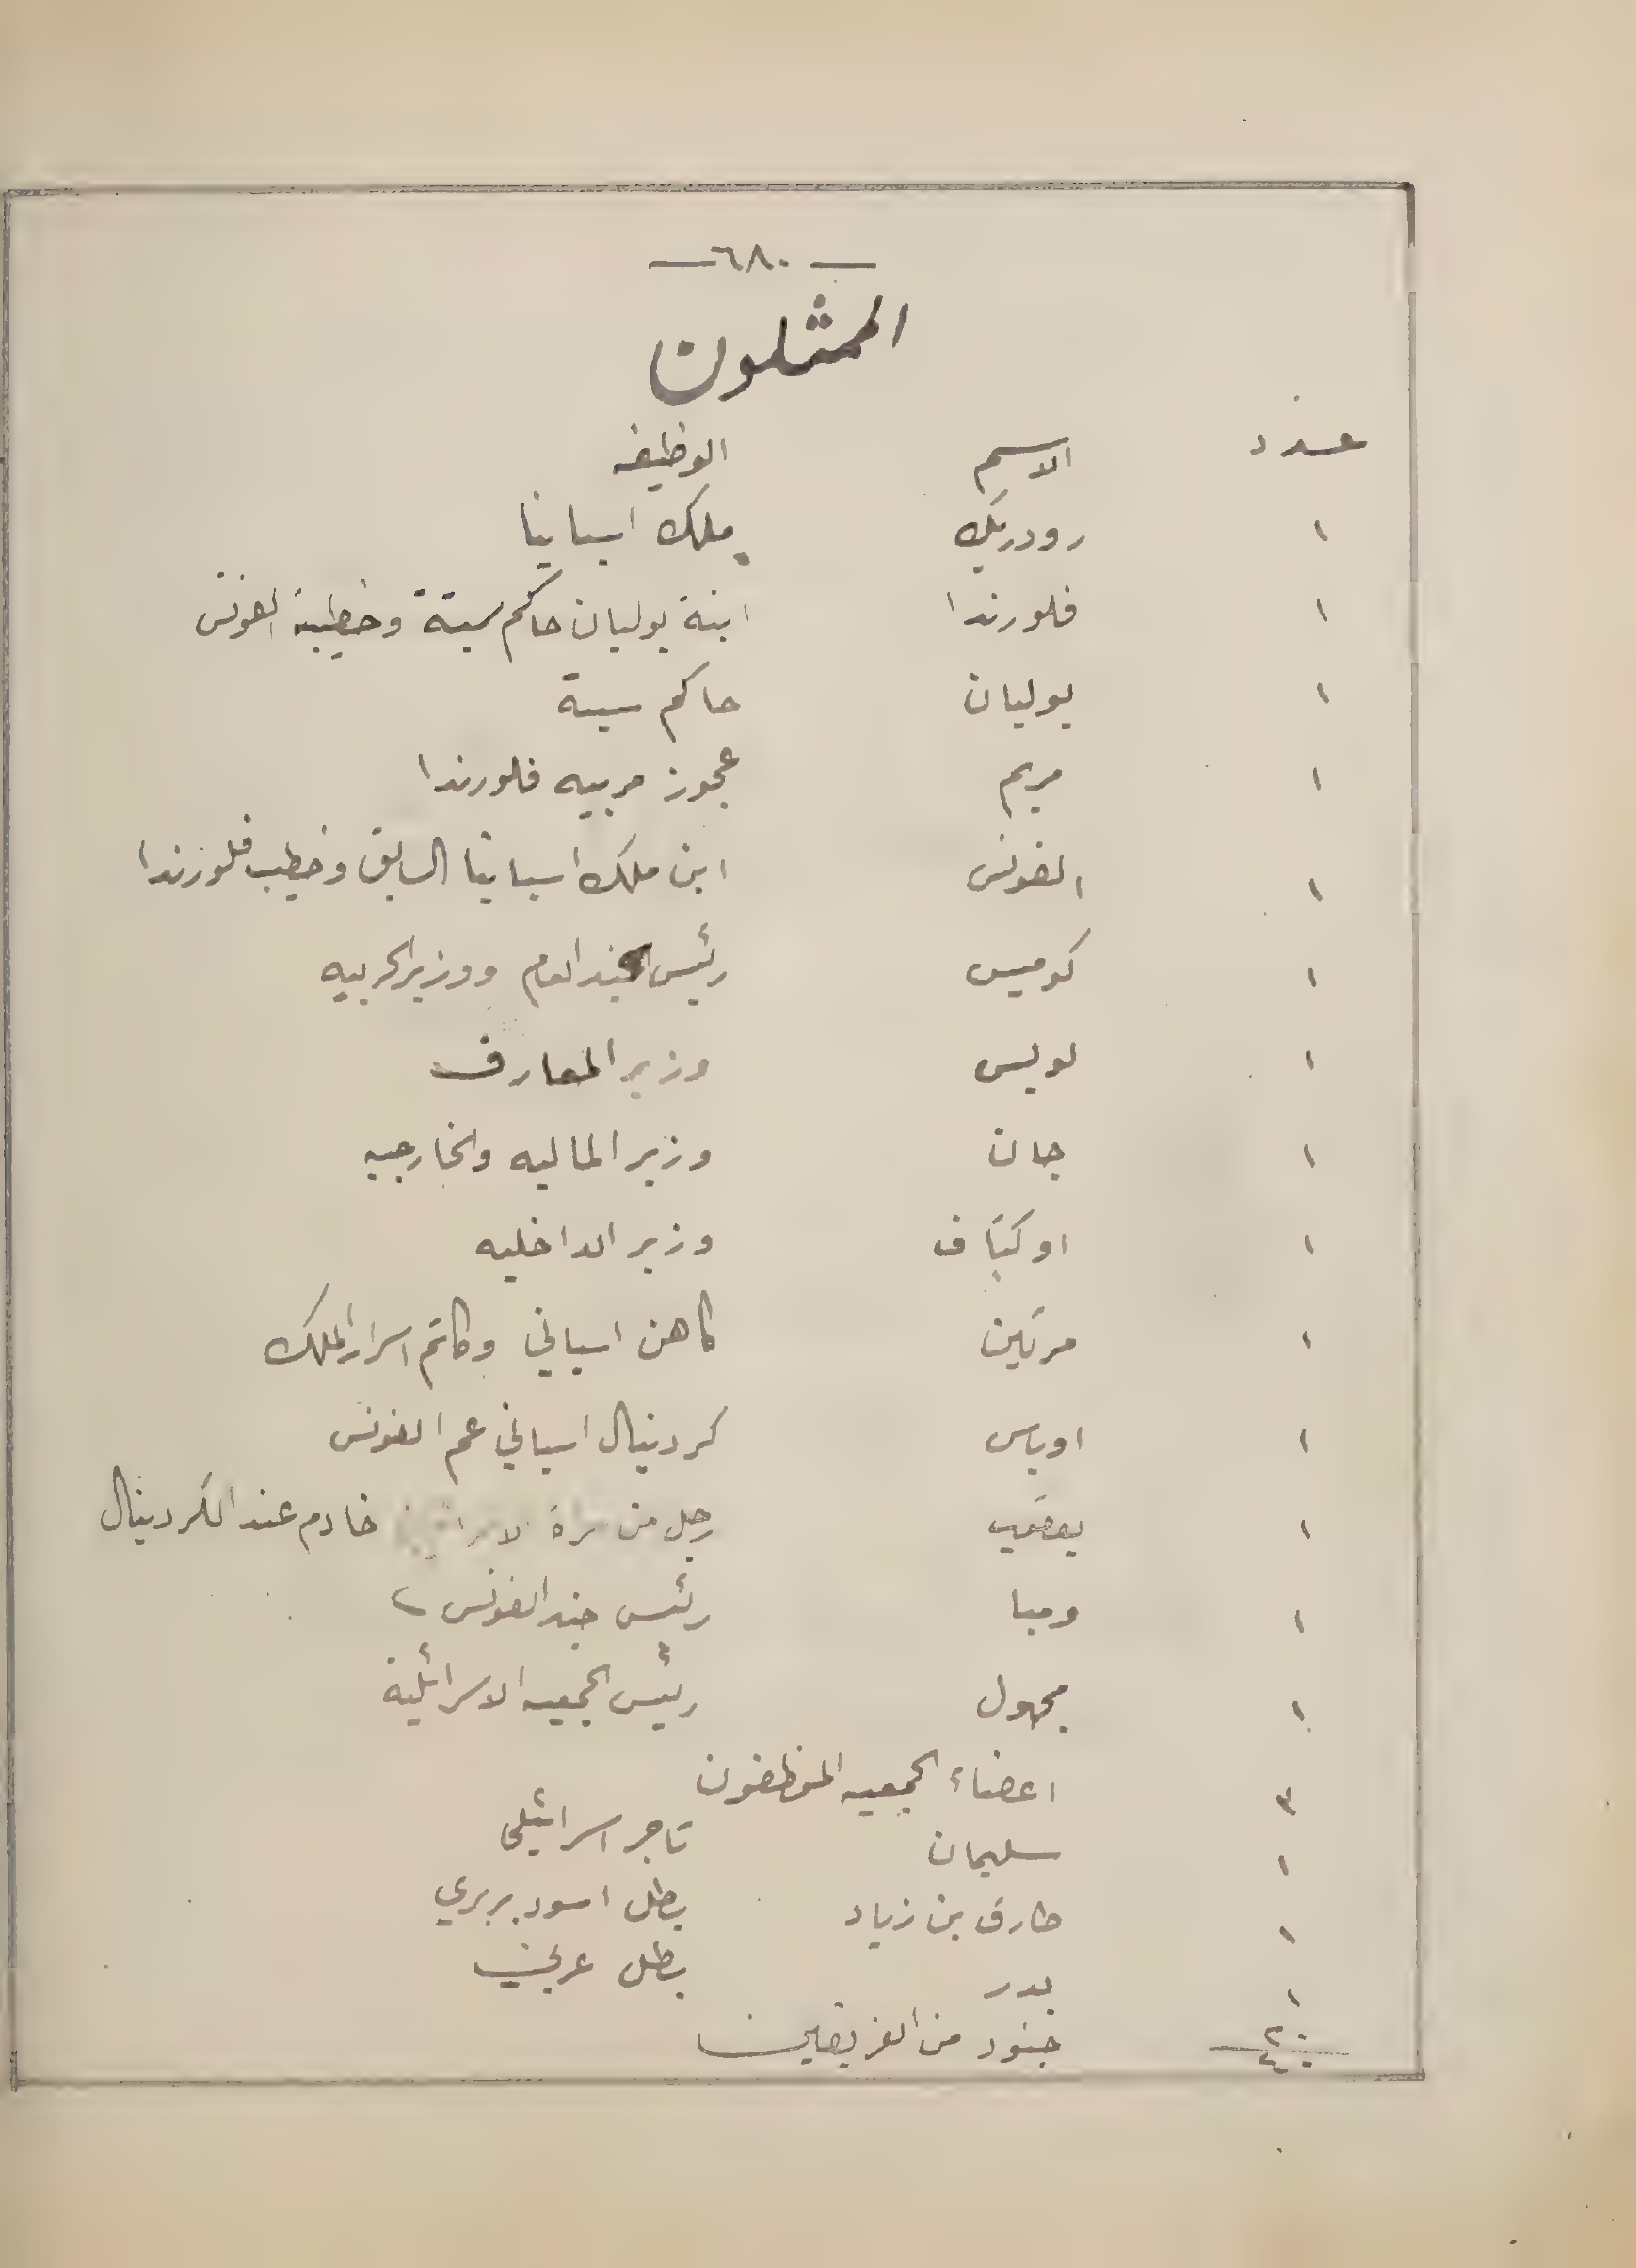 — ٦٨٠ —
الممثلون
عدد الاسم الوظيفه
١ رودريك ملك اسبانيا
١ فلورندا ابنة يوليان حاكم سبتة وخطيبة الفونس
١ يوليان حاكم سبتة
١ مريم عجوز مربيه فلورندا
١ الفونس ابن ملك اسبانيا السابق وخطيب فلورندا
١ كوميس رئيس الجند العام ووزير الحربيه
١ لويس وزير المعارف
١ جان وزير الماليه والخارجيه
١ اوكتاف وزير الداخليه
١ مرتين كاهن اسباني وكاتم اسرار الملك
١ اوباس كردينال اسباني عم الفونس
١ يعقوب رجل من سراة خادم عند الكردينال
١ ومبا رئيس جند الفونس
١ مجهول رئيس الجمعيه الاسرائلية
٣ اعضاء الجمعيه الموظفون
١ سليمان تاجر اسرائيلي
١ طارق بن زياد بطل اسود بربري
١ بدر بطل عربي
٢٠ جنود من الفريقين
٤٠